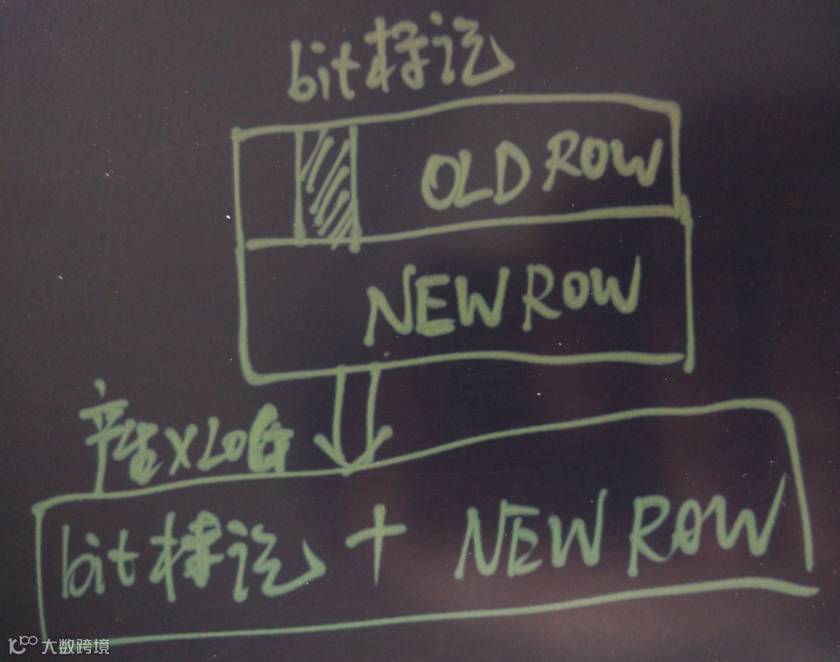 bit标记
OLD ROW
NEW ROW
产生XLOG
bit标记 + NEW ROW
大数跨境